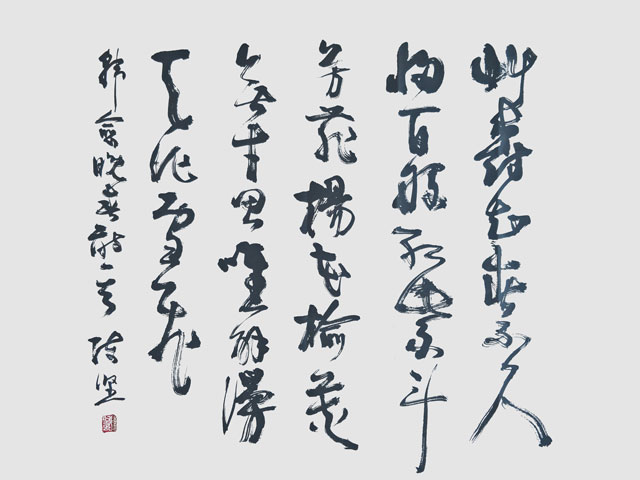 艸樹知春不久
歸百般紅紫斗
芳菲楊花榆荚
無才思唯解漫
天作雪飛
韓愈晚春詩一首 坚